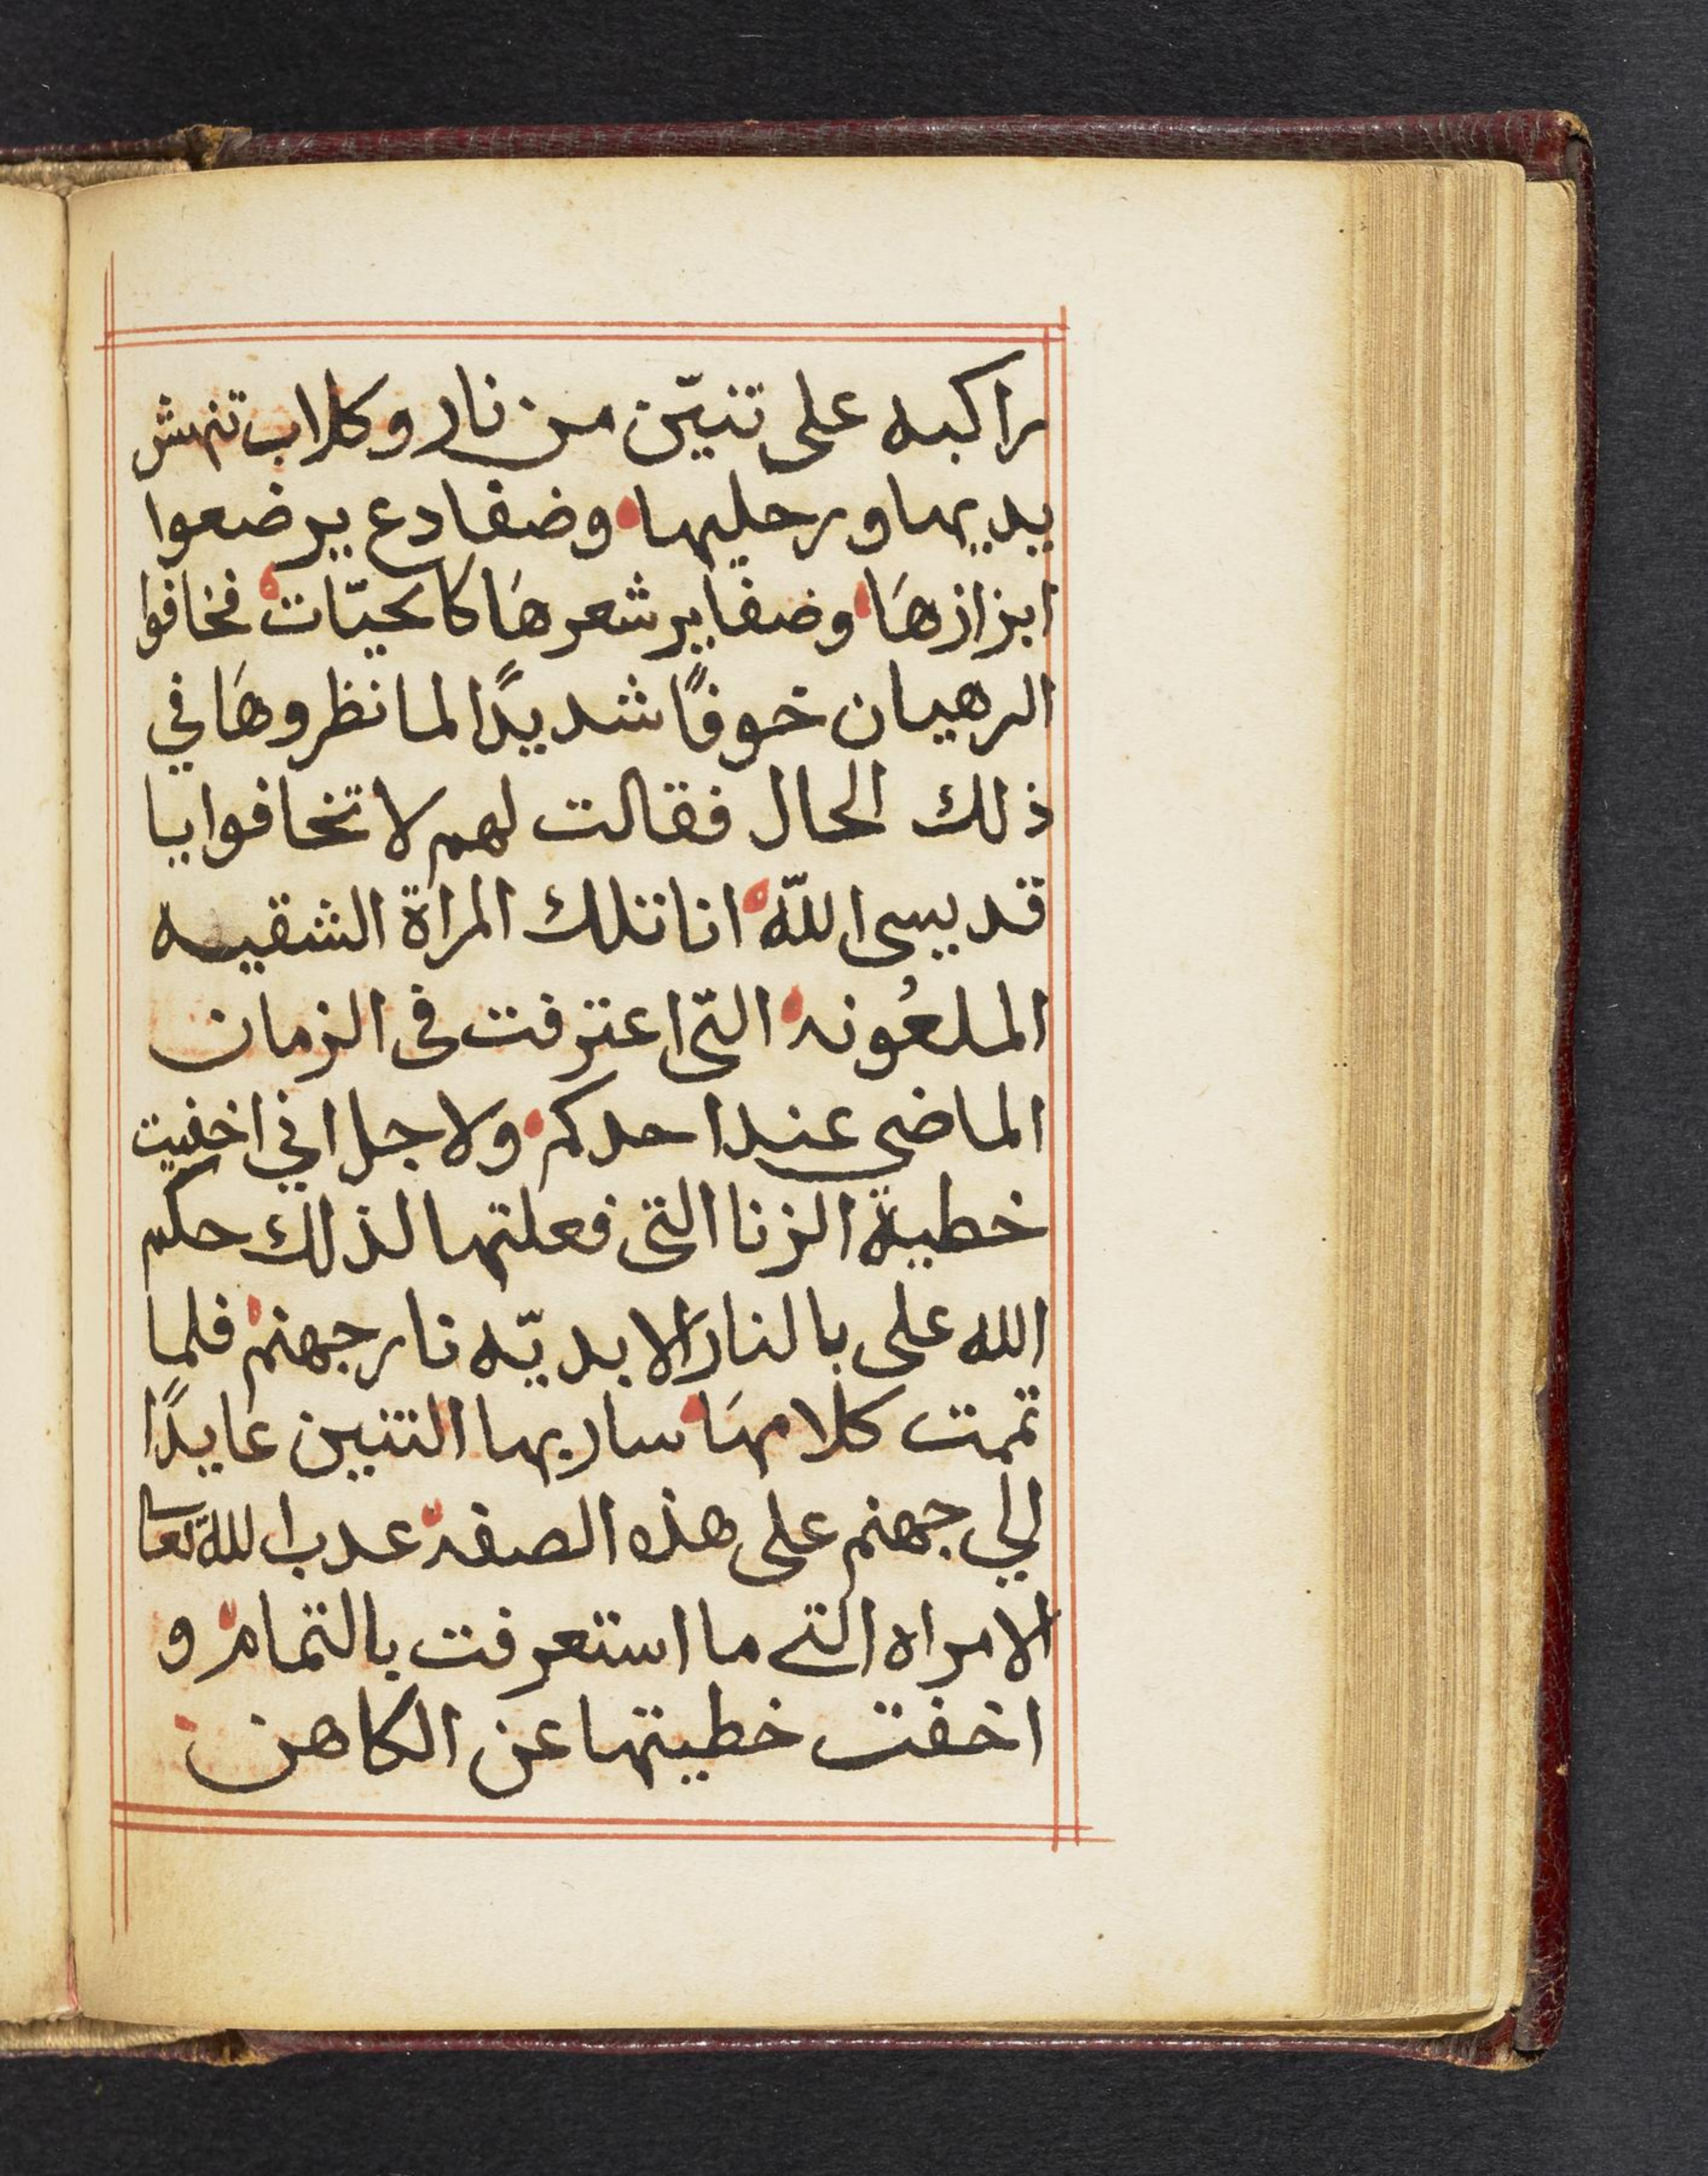 راكبه على تنيّن من نار وكلاب تنهش
يديها ورجليها وضفادع يرضعوا
ابزازهَا وضفاير شعرهَا كالحيّات فخافوا
الرهبان خوفًا شديدًا لما نظروهَا في
ذلك الحال فقالت لهم لا تخافوا يا
قديسى اللّه انا تلك المراة الشقيه
الملعُونه التّى اعترفت فى الزمان
الماضي عند احدكم ولاجل اني اخفيت
خطية الزنا التى فعلتها لذلك حكم
الله على بالنار الابديّه نار جهنم فلما
تممت كلامهَا سار بها التنين عايدًا
الي جهنم على هذه الصفه عدب اللّه تعا
الامراه التى ما استعرفت بالتمام و
اخفت خطيتها عن الكاهن